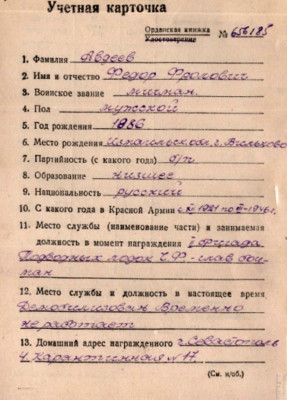 Учетная карточка
Орденская книжка
Удостоверение № 656185
1. Фамилия Авдеев
2. Имя и отчество Федор Фролович
3. Воинское звание мичман.
4. Пол мужской
5. Год рождения 1886
6. Место рождения Измаильская г. Вилково
7. Партийность (с какого года) б/п
8. Образование низшее
9. Национальность русский
10. С какого года в Красной Армии 1921 по 1946 г.
11. Место службы (наименование части) и занимаемая
должность в момент награждения I бригада
Подводных лодок ЧФ - глав боц-
ман
12. Место службы и должность в настоящее время
Демобилизован. Временно
не работает
13. Домашний адрес награжденного г. Севастополь
Карантинная № 17.
(См. н/об.)